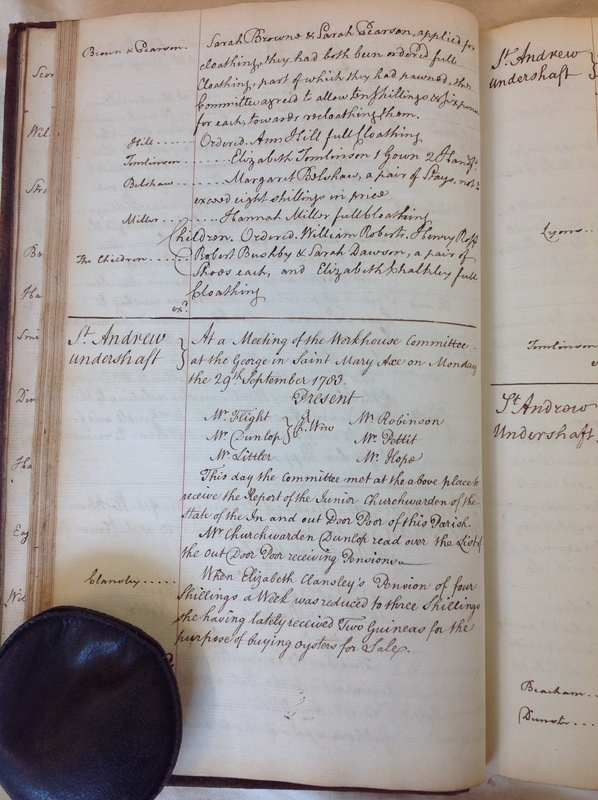 Brown & Pearson. Sarah Browne & Sarah Pearson, applied for
cloathing, they had both been ordered full
Cloathing, part of which they had pawned, the
Committee agreed to allow ten Shillings & six pence
for each, towards recloathing them.
Hill...... Ordered. Ann Hill full Cloathing
Tomlinson....... Elizabeth Tomlinson 1 Gown 2 Handfs.
Belshaw....... Margaret Belshaw, a pair of Stays, not to
exceed eight shillings in price
Miller....... Hannah Miller full Cloathing
Children. Ordered. William Roberts. Henry Ross
The Children..... Robert Bushby & Sarah Dawson, a pair of
Shoes each, and Elizabeth Chalkley full
Cloathing
exd.
St. Andrew
undershaft
At a Meeting of the Workhouse Committee
at the George in Saint Mary Axe on Monday
the 29th September 1783.
Present
Mr. Flight Mr. Robinson
Mr. Dunlop Ch. Wns Mr. Pettit
Mr. Littler Mr. Hope
This day the Committee met at the above place to
receive the Report of the Junior Churchwarden of the
State of the In and out Door Poor of this Parish
Mr. Churchwarden Dunlop read over the List of
the out Door Poor receiving Pensions
Clansley..... When Elizabeth Clansley's Pension of four
Shillings a Week was reduced to three Shillings
she having lately received Two Guineas for the
purpose of buying oysters for Sale.
St. Andrew
undershaft
Lyons..
Tomlinson
St. Andrew
Undershaft
Beacham..
Dunster...